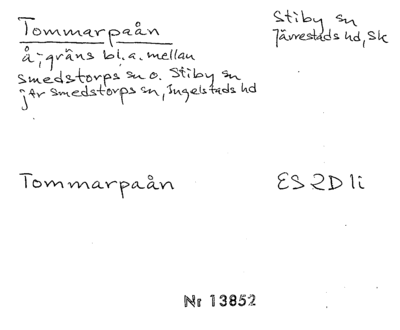 Tommarpaån
Stiby sn
Järrestads hd, Sk
å; gräns bl. a. mellan
Smedstorps sn o. Stiby sn
jfr Smedstorps sn, Ingelstads hd
Tommarpaån
ES 2D 1i
Nr 13852